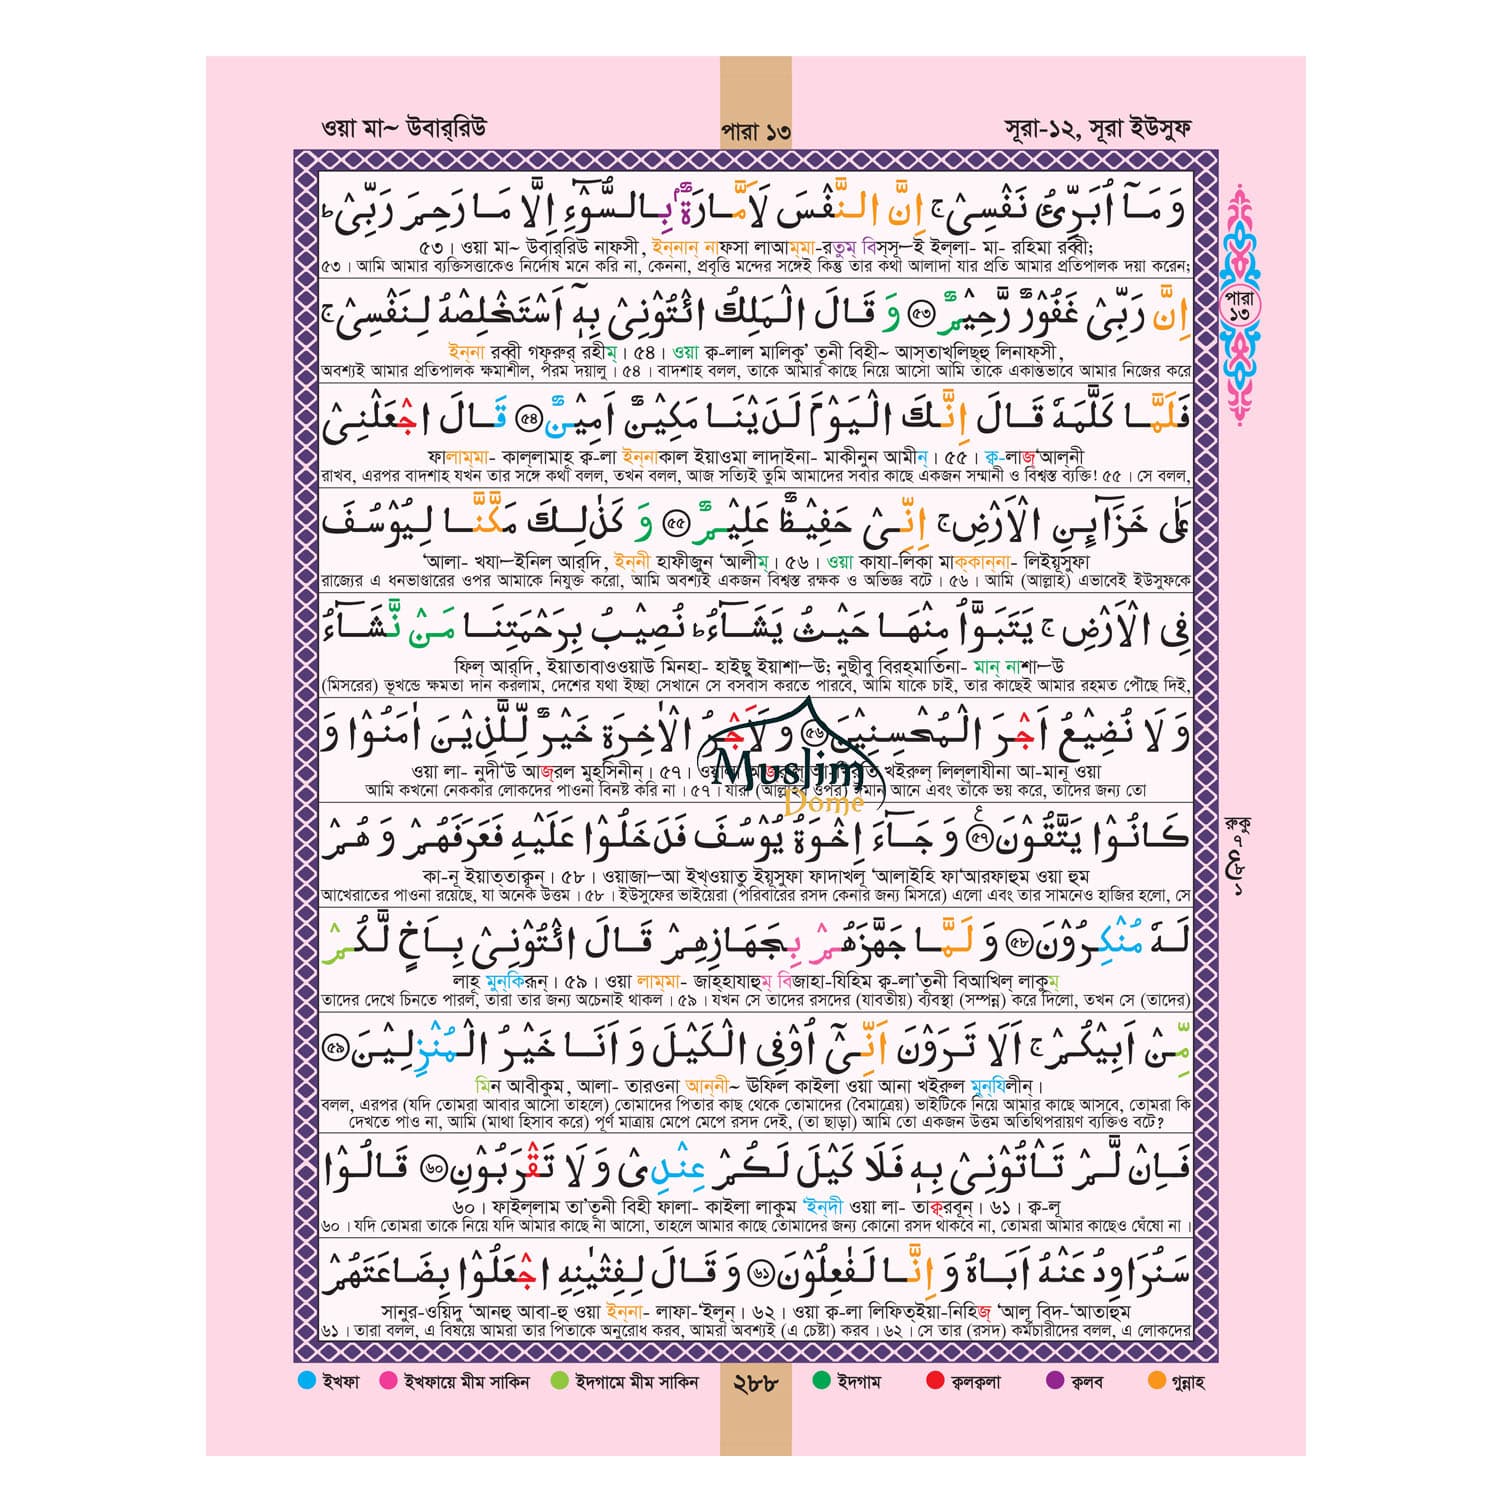 ওয়া মা~ উবার্‌রিউ
পারা ১৩
সূরা-১২, সূরা ইউসুফ
وَمَاۤ اُبَرِّئُ نَفْسِیْ ۚ اِنَّ النَّفْسَ لَاَمَّارَةٌۢ بِالسُّوْٓءِ اِلَّا مَا رَحِمَ رَبِّیْ ؕ
৫৩। ওয়া মা~ উবার্‌রিউ নাফসী, ইন্‌নান্‌ নাফসা লাআম্‌মা-রতুম্‌ বিস্‌সূ—ই ইল্‌লা- মা- রহিমা রব্বী;
৫৩। আমি আমার ব্যক্তিসত্তাকেও নির্দোষ মনে করি না, কেননা, প্রবৃত্তি মন্দের সঙ্গেই কিন্তু তার কথা আলাদা যার প্রতি আমার প্রতিপালক দয়া করেন;
اِنَّ رَبِّیْ غَفُوْرٌ رَّحِیْمٌ ﴿৫৩﴾ وَ قَالَ الْمَلِكُ ائْتُوْنِیْ بِهٖۤ اَسْتَخْلِصْهُ لِنَفْسِیْ ۚ
ইন্‌না রব্বী গফূরুর্‌ রহীম্‌। ৫৪। ওয়া ক্ব-লাল মালিকু’ তূনী বিহী~ আস্‌তাখ্‌লিছ্‌হু লিনাফ্‌সী,
অবশ্যই আমার প্রতিপালক ক্ষমাশীল, পরম দয়ালু। ৫৪। বাদশাহ বলল, তাকে আমার কাছে নিয়ে আসো আমি তাকে একান্তভাবে আমার নিজের করে
فَلَمَّا كَلَّمَهٗ قَالَ اِنَّكَ الْیَوْمَ لَدَیْنَا مَكِیْنٌ اَمِیْنٌ ﴿৫৪﴾ قَالَ اجْعَلْنِیْ
ফালাম্‌মা- কাল্‌লামাহূ ক্ব-লা ইন্‌নাকাল ইয়াওমা লাদাইনা- মাকীনুন আমীন্‌। ৫৫। ক্ব-লাজ্‌‘আল্‌নী
রাখব, এরপর বাদশাহ যখন তার সঙ্গে কথা বলল, তখন বলল, আজ সত্যিই তুমি আমাদের সবার কাছে একজন সম্মানী ও বিশ্বস্ত ব্যক্তি! ৫৫। সে বলল,
عَلٰی خَزَآىِٕنِ الْاَرْضِ ۚ اِنِّیْ حَفِیْظٌ عَلِیْمٌ ﴿৫৫﴾ وَ كَذٰلِكَ مَكَّنَّا لِیُوْسُفَ
‘আলা- খযা—ইনিল আর্‌দি, ইন্‌নী হাফীজুন ‘আলীম্‌। ৫৬। ওয়া কাযা-লিকা মাক্‌কান্‌না- লিইয়ূসুফা
রাজ্যের এ ধনভাণ্ডারের ওপর আমাকে নিযুক্ত করো, আমি অবশ্যই একজন বিশ্বস্ত রক্ষক ও অভিজ্ঞ বটে। ৫৬। আমি (আল্লাহ) এভাবেই ইউসুফকে
فِی الْاَرْضِ ۚ یَتَبَوَّاُ مِنْهَا حَیْثُ یَشَآءُ ؕ نُصِیْبُ بِرَحْمَتِنَا مَنْ نَّشَآءُ
ফিল্‌ আর্‌দি, ইয়াতাবাওওয়াউ মিনহা- হাইছু ইয়াশা—উ; নুছীবু বিরহ্‌মাতিনা- মান্‌ নাশা—উ
(মিসরের) ভূখন্ডে ক্ষমতা দান করলাম, দেশের যথা ইচ্ছা সেখানে সে বসবাস করতে পারবে, আমি যাকে চাই, তার কাছেই আমার রহমত পৌছে দিই,
وَ لَا نُضِیْعُ اَجْرَ الْمُحْسِنِیْنَ ﴿৫৬﴾ وَ لَاَجْرُ الْاٰخِرَةِ خَیْرٌ لِّلَّذِیْنَ اٰمَنُوْا وَ
ওয়া লা- নুদী‘উ আজ্‌রল মুহ্‌সিনীন্‌। ৫৭। খইরুল্‌ লিল্‌লাযীনা আ-মানূ ওয়া
আমি কখনো নেককার লোকদের পাওনা বিনষ্ট করি না। ৫৭। যারা (আল্লাহর ওপর) ঈমান আনে এবং তাঁকে ভয় করে, তাদের জন্য তো
Muslim
Dome
كَانُوْا یَتَّقُوْنَ ﴿৫৭﴾ ع وَ جَآءَ اِخْوَةُ یُوْسُفَ فَدَخَلُوْا عَلَیْهِ فَعَرَفَهُمْ وَ هُمْ
কা-নূ ইয়াত্‌তাক্বূন্‌। ৫৮। ওয়াজা—আ ইখ্‌ওয়াতু ইয়ূসুফা ফাদাখলূ ‘আলাইহি ফা‘আরফাহুম ওয়া হুম
আখেরাতের পাওনা রয়েছে, যা অনেক উত্তম। ৫৮। ইউসুফের ভাইয়েরা (পরিবারের রসদ কেনার জন্য মিসরে) এলো এবং তার সামনেও হাজির হলো, সে
لَهٗ مُنْكِرُوْنَ ﴿৫৮﴾ وَ لَمَّا جَهَّزَهُمْ بِجَهَازِهِمْ قَالَ ائْتُوْنِیْ بِاَخٍ لَّكُمْ
লাহূ মুন্‌কিরূন্‌। ৫৯। ওয়া লাম্‌মা- জাহ্‌হাযাহুম্‌ বিজাহা-যিহিম ক্ব-লা’তূনী বিআখিল্‌ লাকুম্‌
তাদের দেখে চিনতে পারল, তারা তার জন্য অচেনাই থাকল। ৫৯। যখন সে তাদের রসদের (যাবতীয়) ব্যবস্থা (সম্পন্ন) করে দিলো, তখন সে (তাদের)
مِّنْ اَبِیْكُمْ ۚ اَلَا تَرَوْنَ اَنِّیْۤ اُوْفِی الْكَیْلَ وَ اَنَا خَیْرُ الْمُنْزِلِیْنَ ﴿৫৯﴾
মিন আবীকুম, আলা- তারওনা আন্‌নী~ উফিল কাইলা ওয়া আনা খইরুল মুন্‌যিলীন্‌।
বলল, এরপর (যদি তোমরা আবার আসো তাহলে) তোমাদের পিতার কাছ থেকে তোমাদের (বৈমাত্রেয়) ভাইটিকে নিয়ে আমার কাছে আসবে, তোমরা কি
দেখতে পাও না, আমি (মাথা হিসাব করে) পূর্ণ মাত্রায় মেপে মেপে রসদ দেই, (তা ছাড়া) আমি তো একজন উত্তম অতিথিপরায়ণ ব্যক্তিও বটে?
فَاِنْ لَّمْ تَاْتُوْنِیْ بِهٖ فَلَا كَیْلَ لَكُمْ عِنْدِیْ وَ لَا تَقْرَبُوْنِ ﴿৬০﴾ قَالُوْا
৬০। ফাইল্‌লাম তা’তূনী বিহী ফালা- কাইলা লাকুম ‘ইন্‌দী ওয়া লা- তাক্ব্‌রবূন্‌। ৬১। ক্ব-লূ
৬০। যদি তোমরা তাকে নিয়ে যদি আমার কাছে না আসো, তাহলে আমার কাছে তোমাদের জন্য কোনো রসদ থাকবে না, তোমরা আমার কাছেও ঘেঁষো না।
سَنُرَاوِدُ عَنْهُ اَبَاهُ وَ اِنَّا لَفٰعِلُوْنَ ﴿৬১﴾ وَ قَالَ لِفِتْیٰنِهِ اجْعَلُوْا بِضَاعَتَهُمْ
সানুর-ওয়িদু ‘আনহু আবা-হু ওয়া ইন্‌না- লাফা-‘ইলূন্‌। ৬২। ওয়া ক্ব-লা লিফিত্‌ইয়া-নিহিজ্‌ ‘আলূ বিদ-‘আতাহুম
৬১। তারা বলল, এ বিষয়ে আমরা তার পিতাকে অনুরোধ করব, আমরা অবশ্যই (এ চেষ্টা) করব। ৬২। সে তার (রসদ) কর্মচারীদের বলল, এ লোকদের
পারা
১৩
রুকু
ইখফা
ইখফায়ে মীম সাকিন
ইদগামে মীম সাকিন
২৮৮
ইদগাম
ক্বলক্বলা
ক্বলব
গুন্নাহ